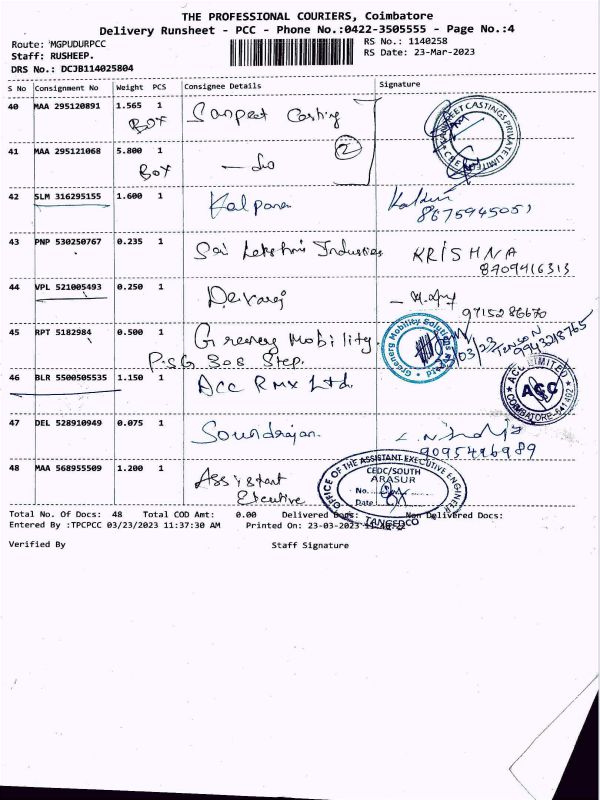 THE PROFESSIONAL COURIERS, Coimbatore
Delivery Runsheet - PCC - Phone No.:0422-3505555 - Page No.:4
Route: 'MGPUDURPCC
RS No.: 1140258
Staff: RUSHEEP.
RS Date: 23-Mar-2023
DRS No.: DCJB114025804
S No Consignment No Weight PCS Consignee Details Signature
40 MAA 295120891 1.565 1 Sanpeet Casting
BOX
41 MAA 295121068 5.800 1 2
BOX
42 SLM 316295155 1.600 1 Kalpana
8675945051
43 PNP 530250767 0.235 1 Sai Lakshmi Industries KRISHNA
8709416313
44 VPL 521005493 0.250 1 Devaraj
9715286670
45 RPT 5182984 0.500 1 Greenerg Mobility.
Greenerg Mobility Solutions
9943218765
P.SG
46 BLR 5500505535 1.150 1 Acc RMX Ltd.
ACC LIMITED
ACC
COIMBATORE-641402
47 DEL 528910949 0.075 1 Soundrajan.
9095496989
48 MAA 568955509 1.200 1 Assistant
Executive
OFFICE OF THE ASSISTANT EXECUTIVE ENGINEER
CEDC/SOUTH
ARASUR
No.
Date
TANGEDCO
Total No. Of Docs: 48 Total COD Amt: 0.00 Delivered Docs: Non Delivered Docs:
Entered By :TPCPCC 03/23/2023 11:37:30 AM Printed On: 23-03-2023
Verified By Staff Signature